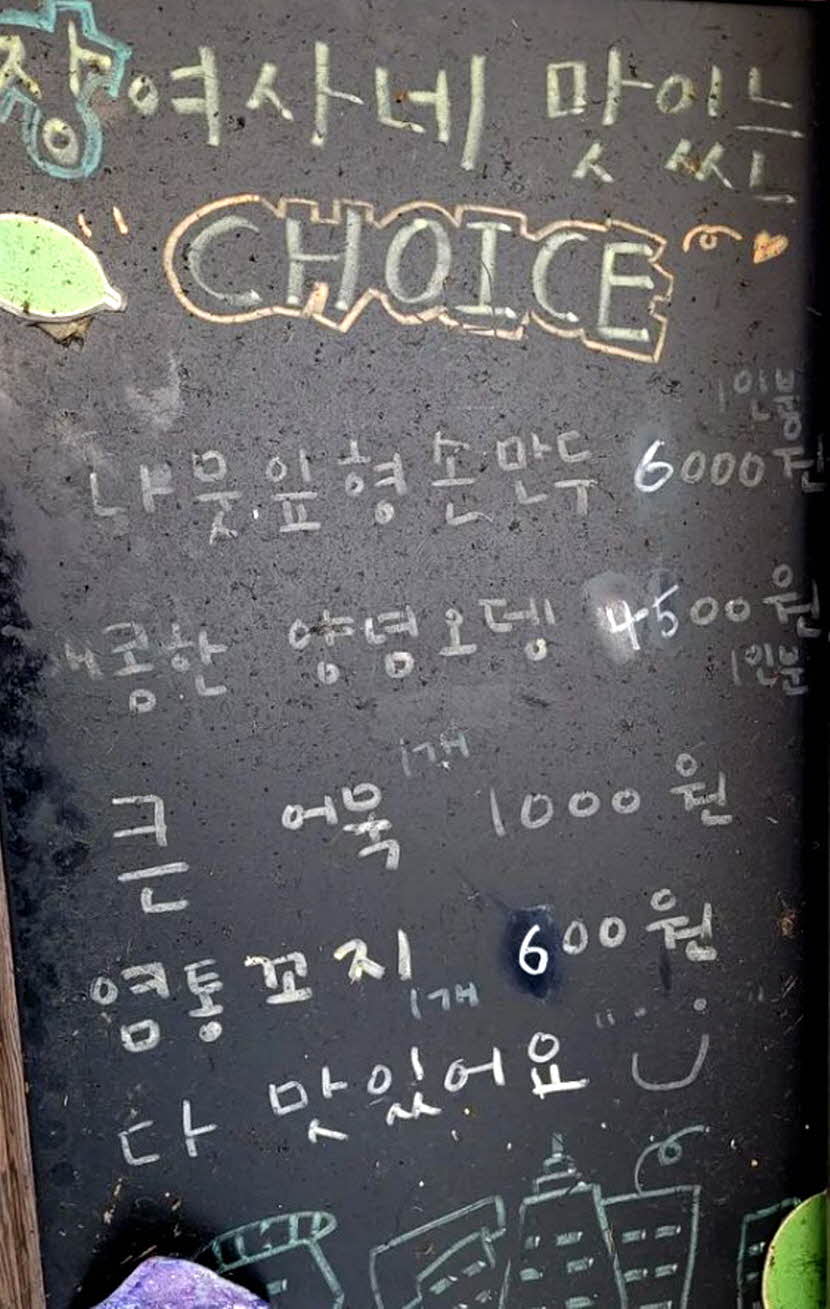 장여사네 맛있는
CHOICE
1인분
나뭇잎형손만두 6000원
매콩한 양념오뎅 4500원
1인분
1개
큰 어묵 1000원
염통꼬지 600원
1개
다 맛있어요